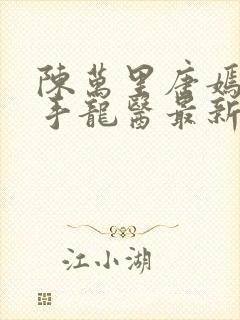 陳萬里唐嫣
手龍醫最新
江小湖